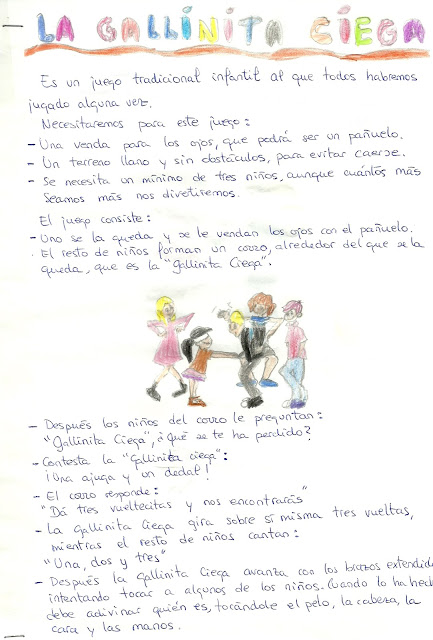 LA GALLINITA CIEGA
Es un juego tradicional infantil al que todos habremos
jugado alguna vez.
Necesitaremos para este juego:
- Una venda para los ojos, que podrá ser un pañuelo.
- Un terreno llano y sin obstáculos, para evitar caerse.
- Se necesita un mínimo de tres niños, aunque cuántos más
seamos más nos divertiremos.
El juego consiste:
- Uno se la queda y se le vendan los ojos con el pañuelo.
. El resto de niños forman un corro, alrededor del que se la
queda, que es la "Gallinita Ciega".
- Después los niños del corro le preguntan:
"Gallinita Ciega", ¿Qué se te ha perdido?
- Contesta la "Gallinita ciega":
¡Una aguja y un dedal!
- El corro responde:
"Dá tres vueltecitas y nos encontrarás"
- La Gallinita Ciega gira sobre sí misma tres vueltas,
mientras el resto de niños cantan:
"Una, dos y tres"
- Después la Gallinita Ciega avanza con los brazos extendido
intentando tocar a algunos de los niños. Cuando lo ha hech
debe adivinar quién es, tocándole el pelo, la cabeza, la
cara y las manos.